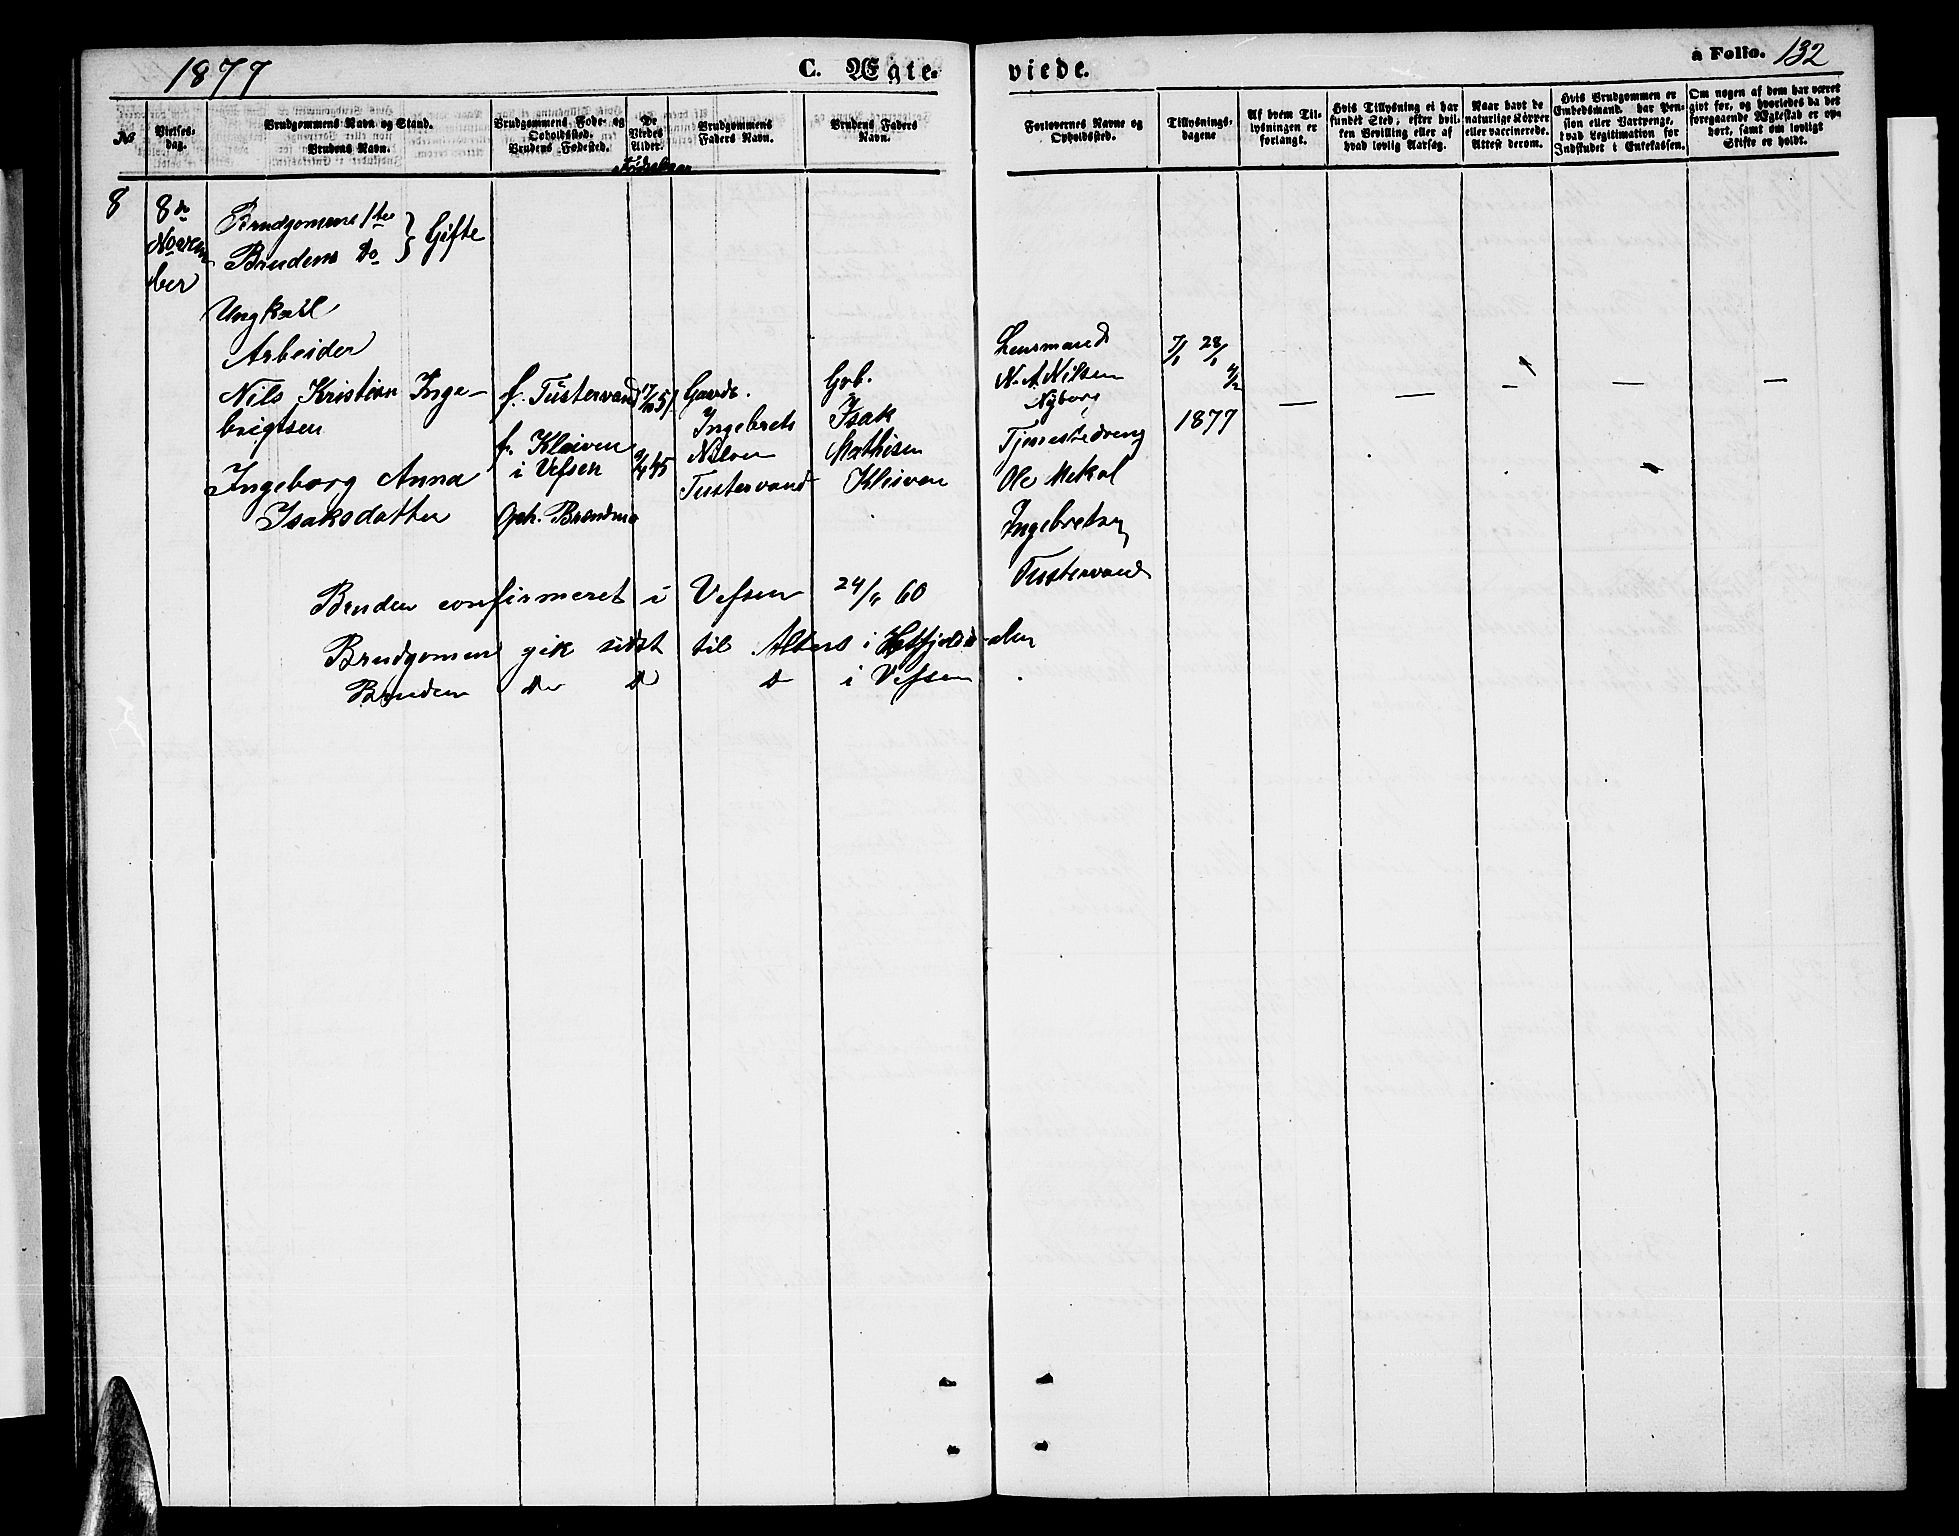 1877
C. Ægte-
viede.
a Folio. 132
No
Vielses-
dag.
Brudgommens Navn og Stand.
Brudens Navn.
Brudgommens Føde- og
Opholdssted.
Brudens Fødested.
De
Viedes
Alder.
Fødselsaar
Brudgommens
Faders Navn.
Brudens Faders
Navn.
Forlovernes Navne og
Opholdssted.
Tillysnings-
dagene
Af hvem Til-
lysningen er
forlangt.
Hvis Tillysning ei har
fundet Sted, efter hvil-
ken Bevilling eller af
hvad lovlig Aarsag.
Naar havt de
naturlige Kopper
eller vaccinerede.
Attest derom.
Hvis Brudgommen er
Embedsmand, har Pen-
sion eller Vartpenge,
hvad Legitimation for
Indskudet i Enkekassen.
Om nogen af dem har været
givt før, og hvorledes da det
foregaaende Ægteskab er op-
hørt, samt om lovligt
Skifte er holdt.
8
8de
Novem
ber
Brudgomens 1ste
Brudens Do
} Gifte
Ungkarl
Arbeider
Nils Kristian Inge-
brigtsen
Ingeborg Anna
Isaksdatter
f. Tustervand
f. Kleiven
i Vefsen
Oph. Brændmo
17/10 51
9/4 45
Gaardb.
Ingebrets
Nilsen
Tustervand
Grb.
Isak
Mathisen
Kleiven
Lensmand
N. A. Nilsen
Nyborg
Tjenestedreng
Ole Mekal
Ingebretsen
Tustervand
7/1 28/1
4/2
1877
— — — — —
Bruden confirmeret i Vefsen 24/6 60
Brudgomen gik sidst til Alters i Hatfjelddalen
Bruden do do do i Vefsen